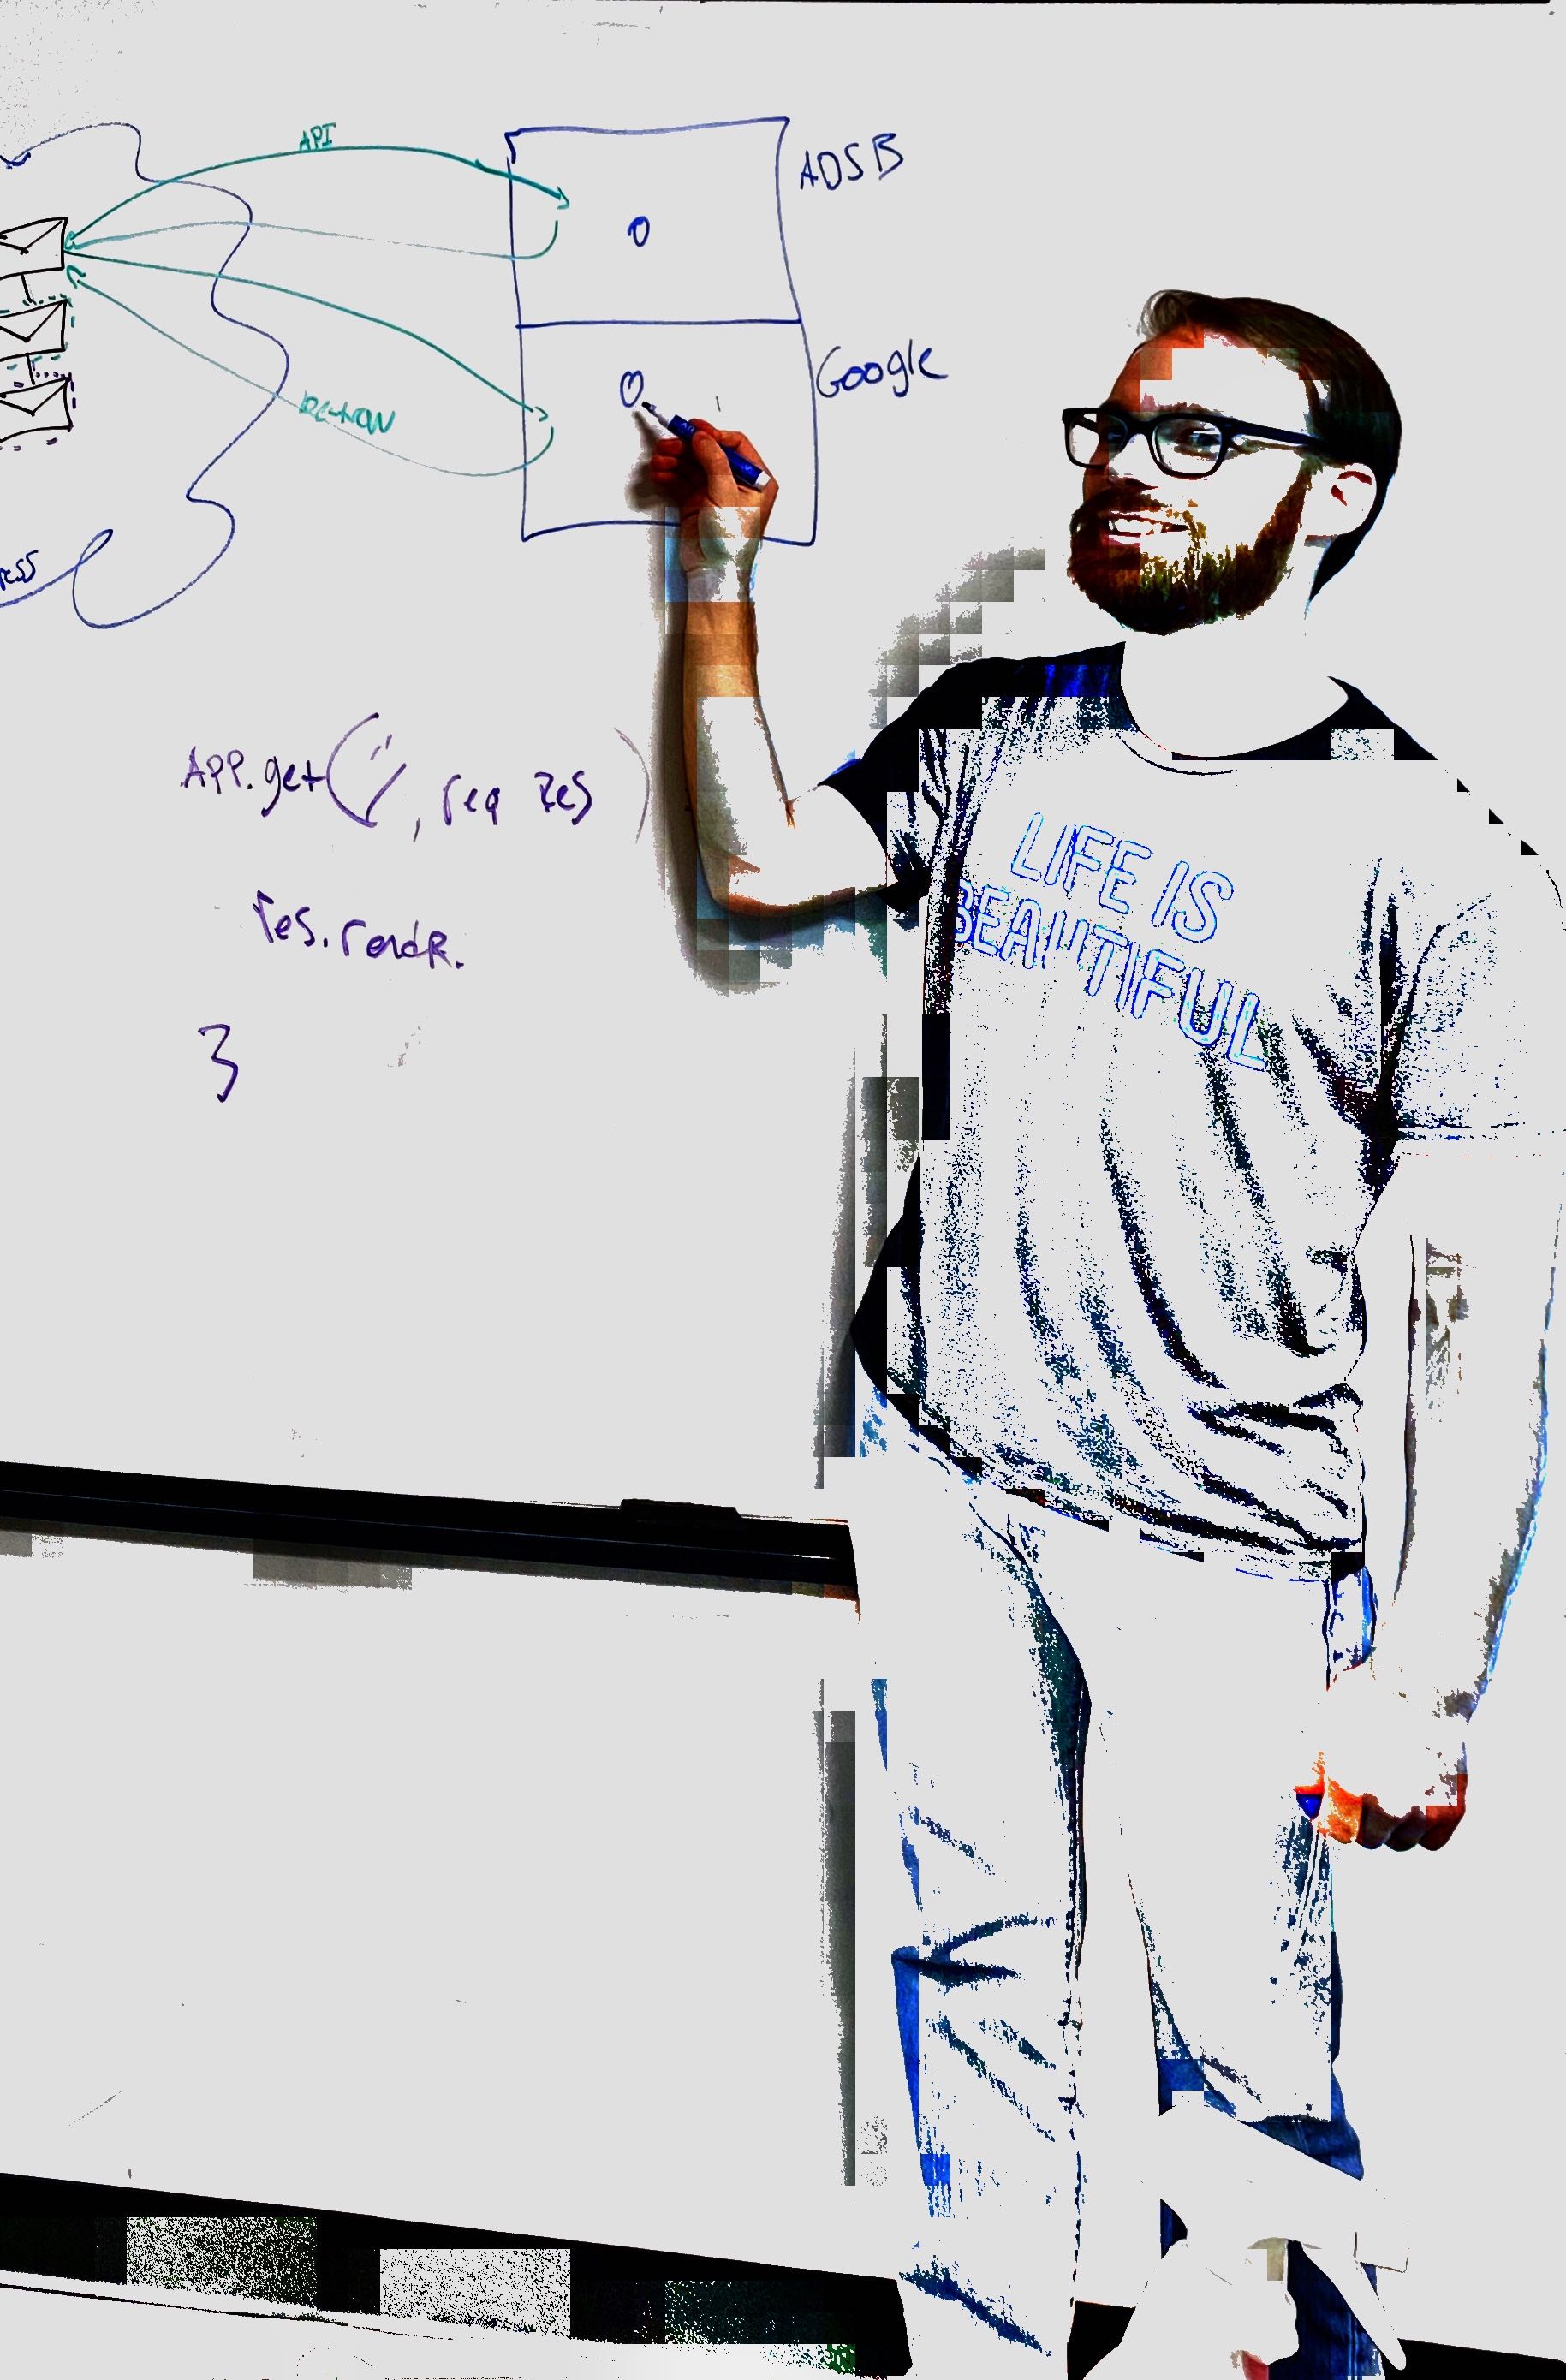 API
ADSB
Google
return
ress
APP.get('/', req res)
res.rendR.
}
LIFE IS
BEAUTIFUL